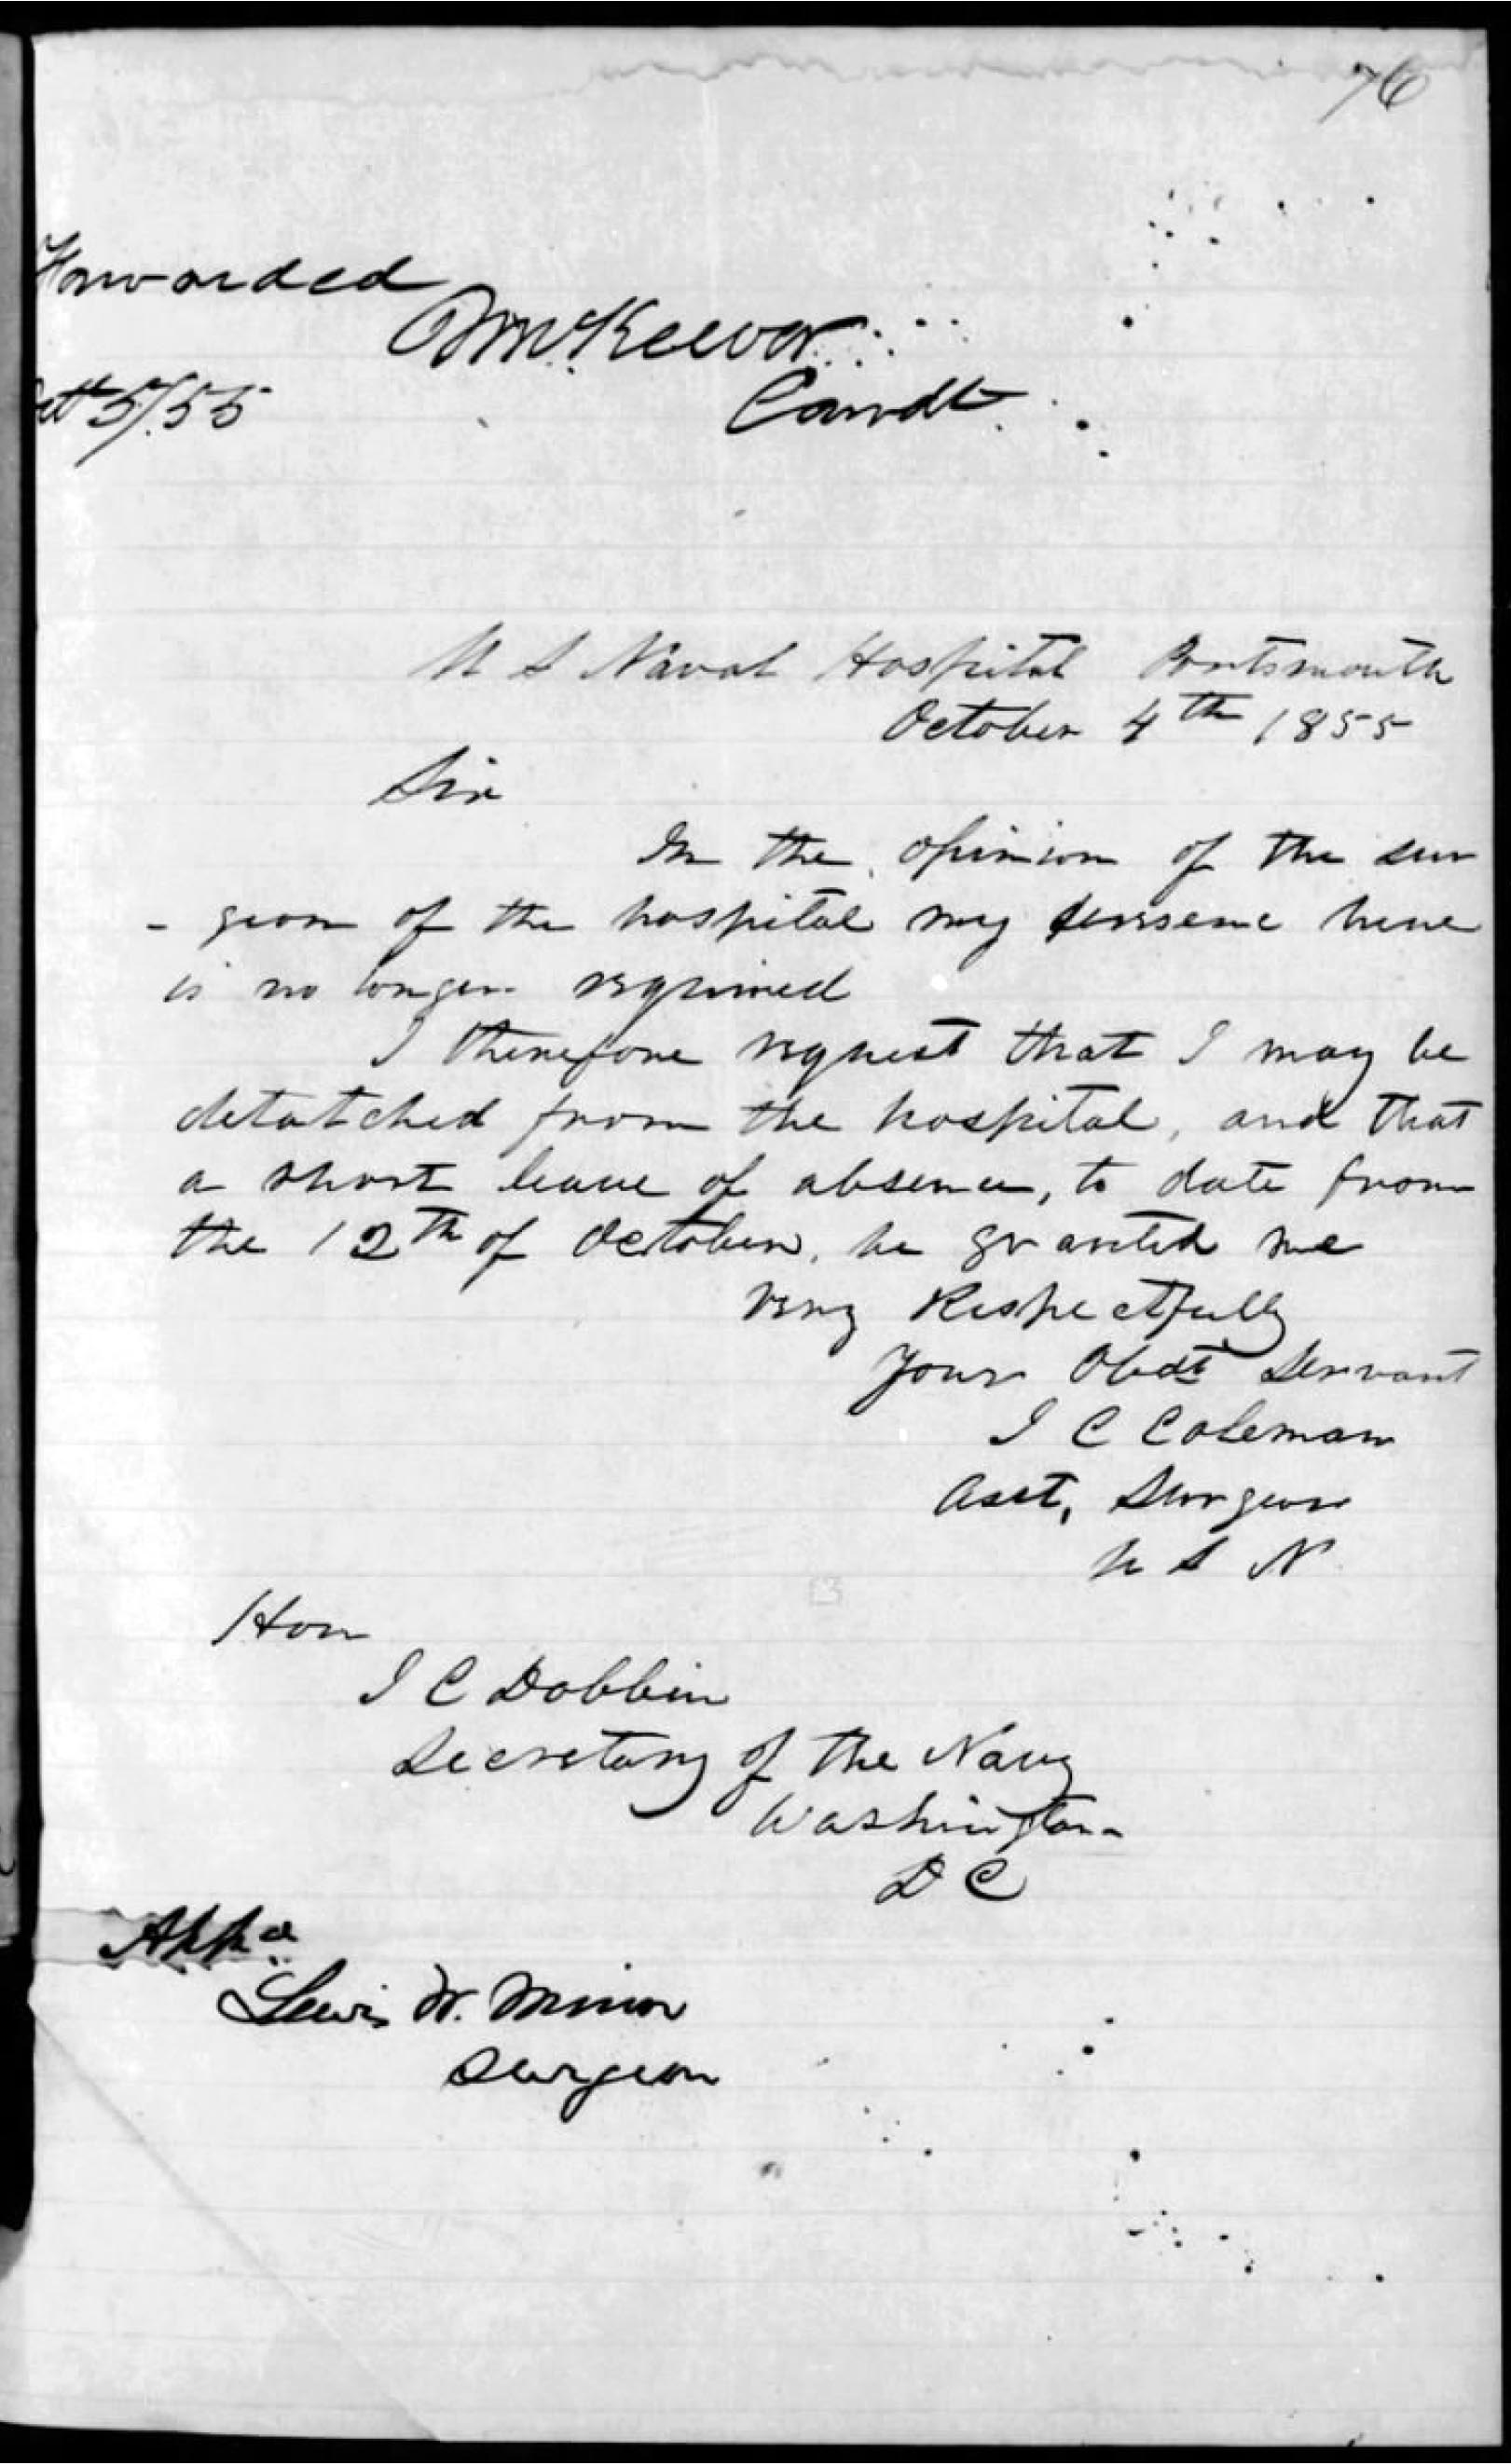 76
Forwarded
McKeever
Comdt.
Oct 5/55
U S Naval Hospital Portsmouth
October 4th 1855
Sir
In the opinion of the sur
- geon of the hospital my here
is no longer required
I therefore request that I may be
detatched from the hospital, and that
a short leave of absence, to date from
the 12th of October, be granted me
Very Respectfully
Your Obdt Servant
J C Coleman
Asst, Surgeon
U S N
Hon
J C Dobbin
Secretary of the Navy
Washington
D C
Appd
Lewis W. Minor
Surgeon